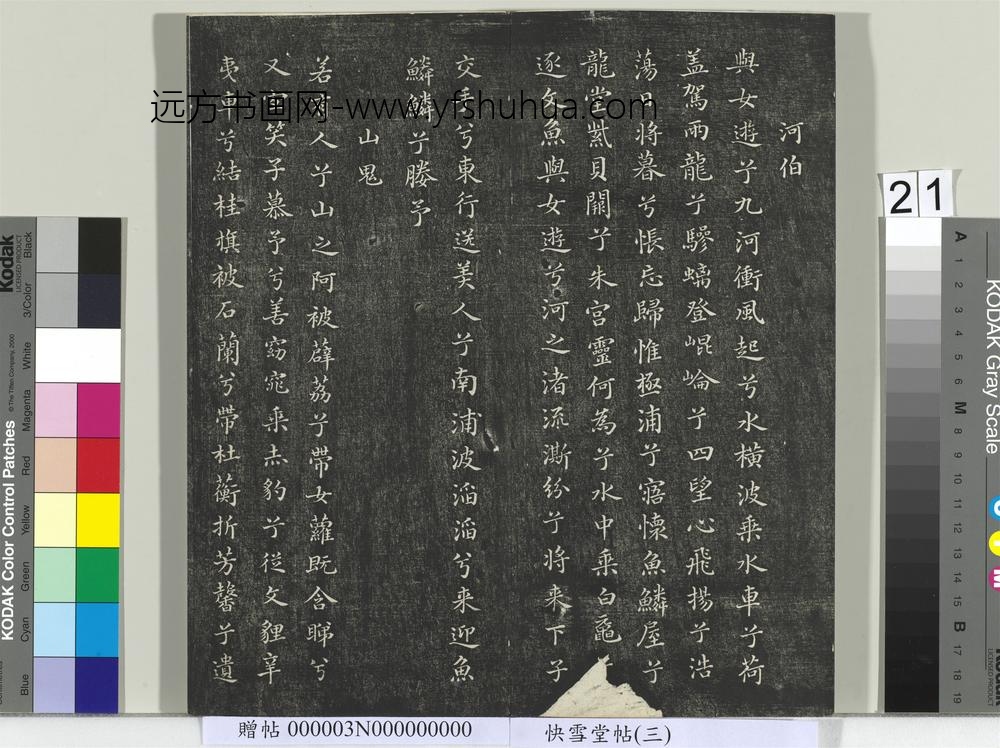 河伯
與女遊兮九河衝風起兮水橫波乘水車兮荷
盖駕兩龍兮驂螭登崐崘兮四望心飛揚兮浩
蕩日將暮兮悵忘歸惟極浦兮寤懷魚鱗屋兮
龍堂紫貝闕兮朱宮靈何為兮水中乘白黿
逐文魚與女遊兮河之渚流澌紛兮將来下子
交手兮東行送美人兮南浦波滔滔兮来迎魚
鱗鱗兮媵予
山鬼
若有人兮山之阿被薜荔兮帶女蘿既含睇兮
又宜笑子慕予兮善窈窕乘赤豹兮從文貍辛
夷車兮結桂旗被石蘭兮帶杜蘅折芳馨兮遺
远方书画网-www.yfshuhua.com
21
贈帖 000003N000000000
快雪堂帖(三)
Kodak
LICENSED PRODUCT
© The Tiffen Company, 2000
KODAK Color Control Patches
Black
3/Color
White
Magenta
Red
Yellow
Green
Cyan
Blue
KODAK Gray Scale
A 1 2 3 4 5 6 M 8 9 10 11 12 13 14 15 B 17 18 19